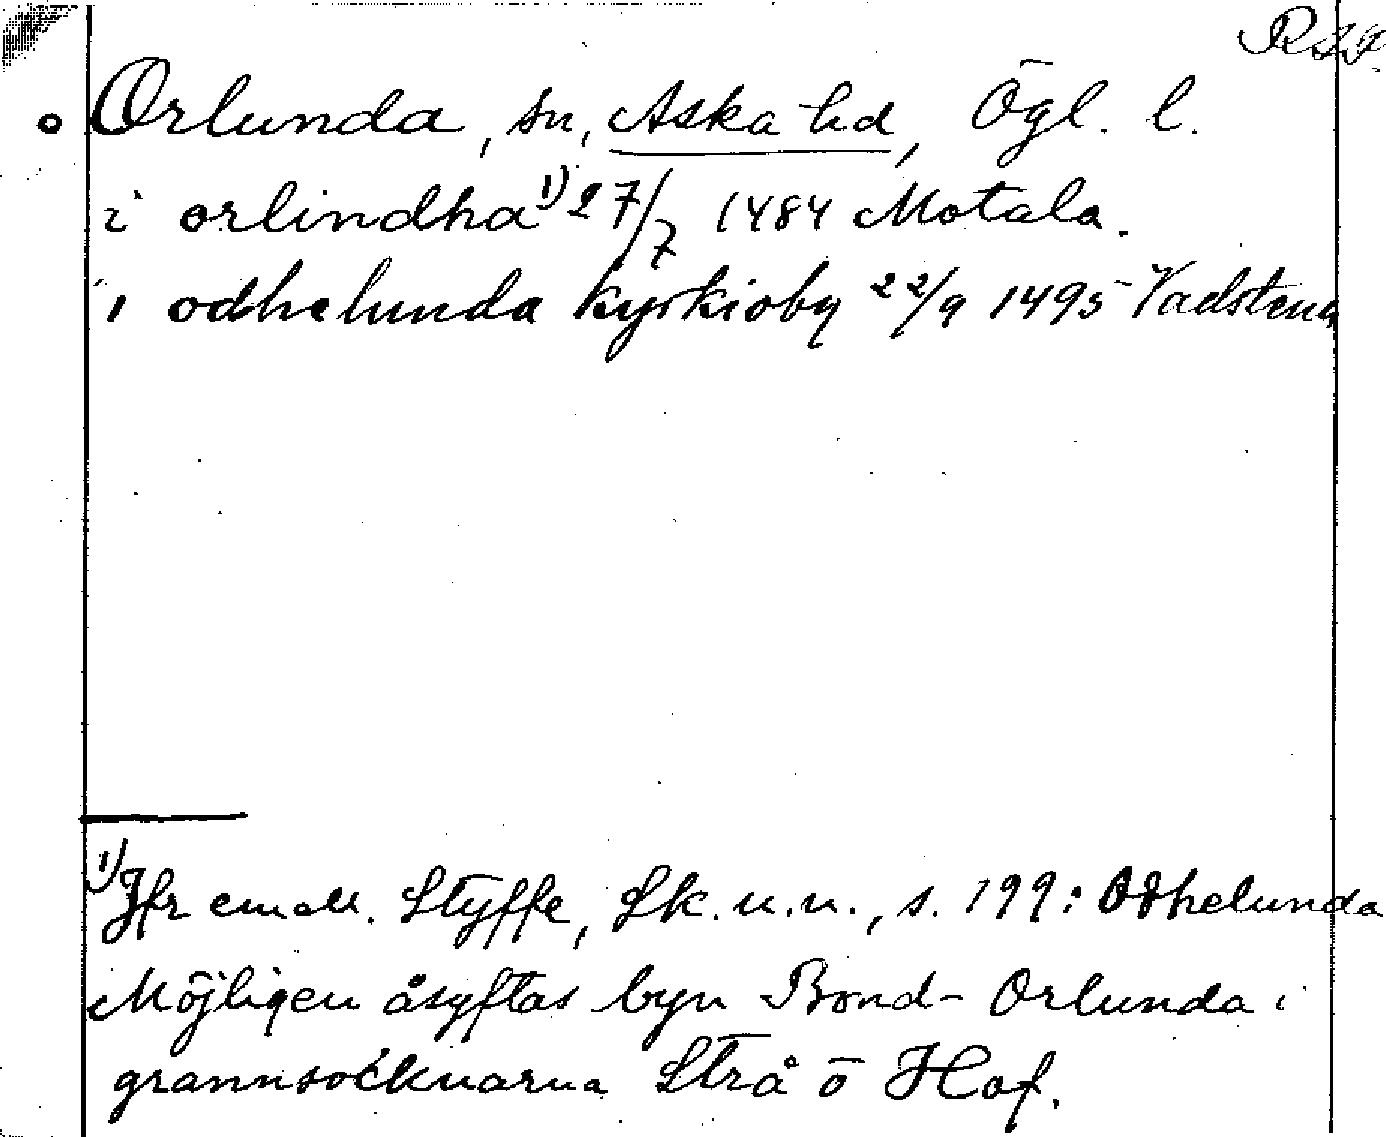 Orlunda, sn, Aska hd, Ögl. l.
i orlindha 1) 27/7 1484 Motala.
i odhelunda kyrkioby 22/9 1495 Vadstena
1) Jfr emell. Styffe, Sk. u. u., s. 199: Odhelunda
Möjligen åsyftas byn Bond-Orlunda i
grannsocknarna Strå o Hof.